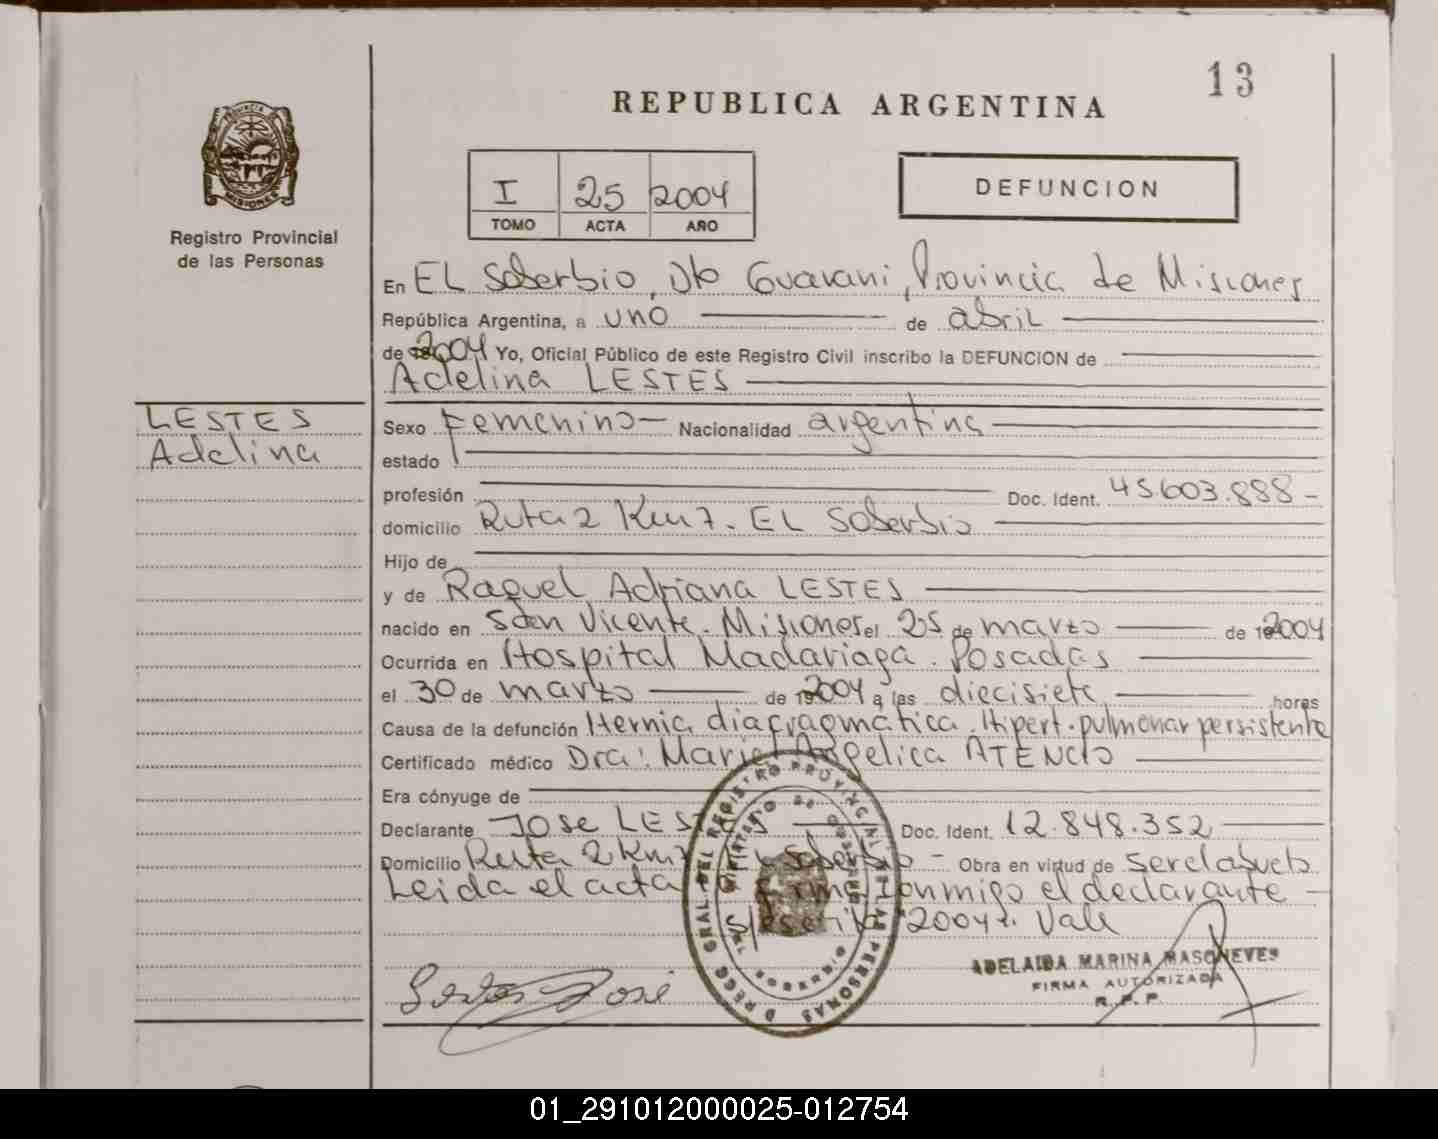 13
REPUBLICA ARGENTINA
PROVINCIA DE
MISIONES
Registro Provincial
de las Personas
I 25 2004
TOMO ACTA AÑO
DEFUNCION
En EL Soberbio, Dto Guarani, Provincia de Misiones
República Argentina, a uno de abril
de 2004 Yo, Oficial Público de este Registro Civil inscribo la DEFUNCION de
Adelina LESTES
LESTES
Adelina
Sexo Femenino - Nacionalidad argentina
estado
profesión Doc. Ident. 45.603.888-
domicilio Ruta 2 Km 7. EL Soberbio
Hijo de
y de Raquel Adriana LESTES
nacido en San Vicente. Misiones el 25 de marzo de 2004
Ocurrida en Hospital Madariaga. Posadas
el 30 de marzo de 2004 a las diecisiete horas
Causa de la defunción Hernia diafragmática. Hipert. pulmonar persistente
Certificado médico Dra: Maria Angelica ATENCIO
Era cónyuge de
Declarante JOSE LESTES Doc. Ident. 12.848.352
Domicilio Ruta 2 Km 7 EL Soberbio - Obra en virtud de ser el abuelo
Leida el acta la firma conmigo el declarante -
s/escrito 2004. Vale
Lestes José
DIREC GRAL DEL REGISTRO PROVINCIAL DE LAS PERSONAS
MINISTERIO DE GOBIERNO
SOBERBIO
ADELAIDA MARINA MASCHEVES
FIRMA AUTORIZADA
R.P.P
01_291012000025-012754